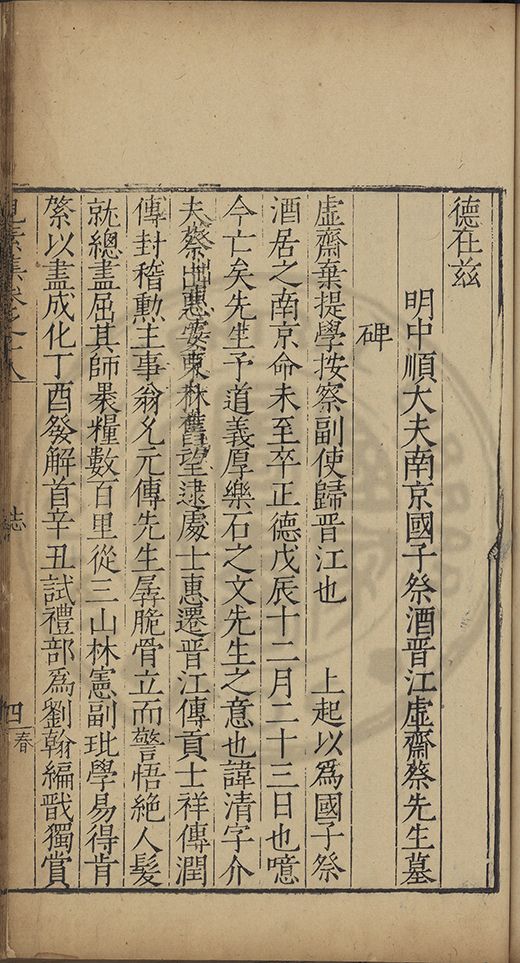 德在兹
明中順大夫南京國子祭酒晉江虛齋蔡先生墓
碑
虛齋棄提學按察副使歸晉江也　上起以為國子祭
酒居之南京命未至卒正德戊辰十二月二十三日也噫
今亡矣先生予道義厚樂石之文先生之意也諱清字介
夫蔡出惠安東林舊望逮處士惠遷晉江傳貢士祥傳潤
傳封稽勲主事翁允元傳先生孱脆骨立而警悟絕人髮
就總盡屈其師褁糧數百里從三山林憲副玭學易得肯
綮以盡成化丁酉發解首辛丑試禮部為劉翰編戩獨賞
見素集卷之十八
誌
四
春